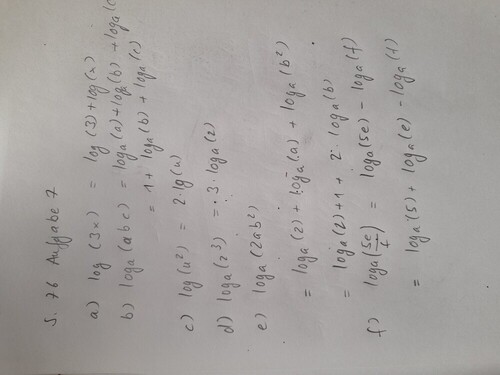 S. 76 Aufgabe 7
a) log (3x) = log (3) + log (x)
b) loga (abc) = loga (a) + loga (b) + loga (c)
= 1 + loga (b) + loga (c)
c) log (u²) = 2 · lg (u)
d) loga (z³) = 3 · loga (z)
e) loga (2ab²)
= loga (2) + loga (a) + loga (b²)
= loga (2) + 1 + 2 · loga (b)
f) loga (5e/f) = loga (5e) - loga (f)
= loga (5) + loga (e) - loga (f)